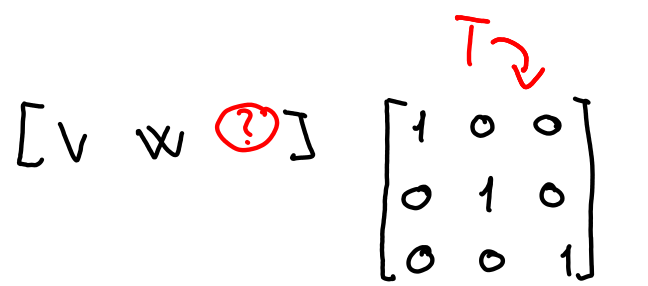 T
[ V W ? ] [ 1 0 0
0 1 0
0 0 1 ]